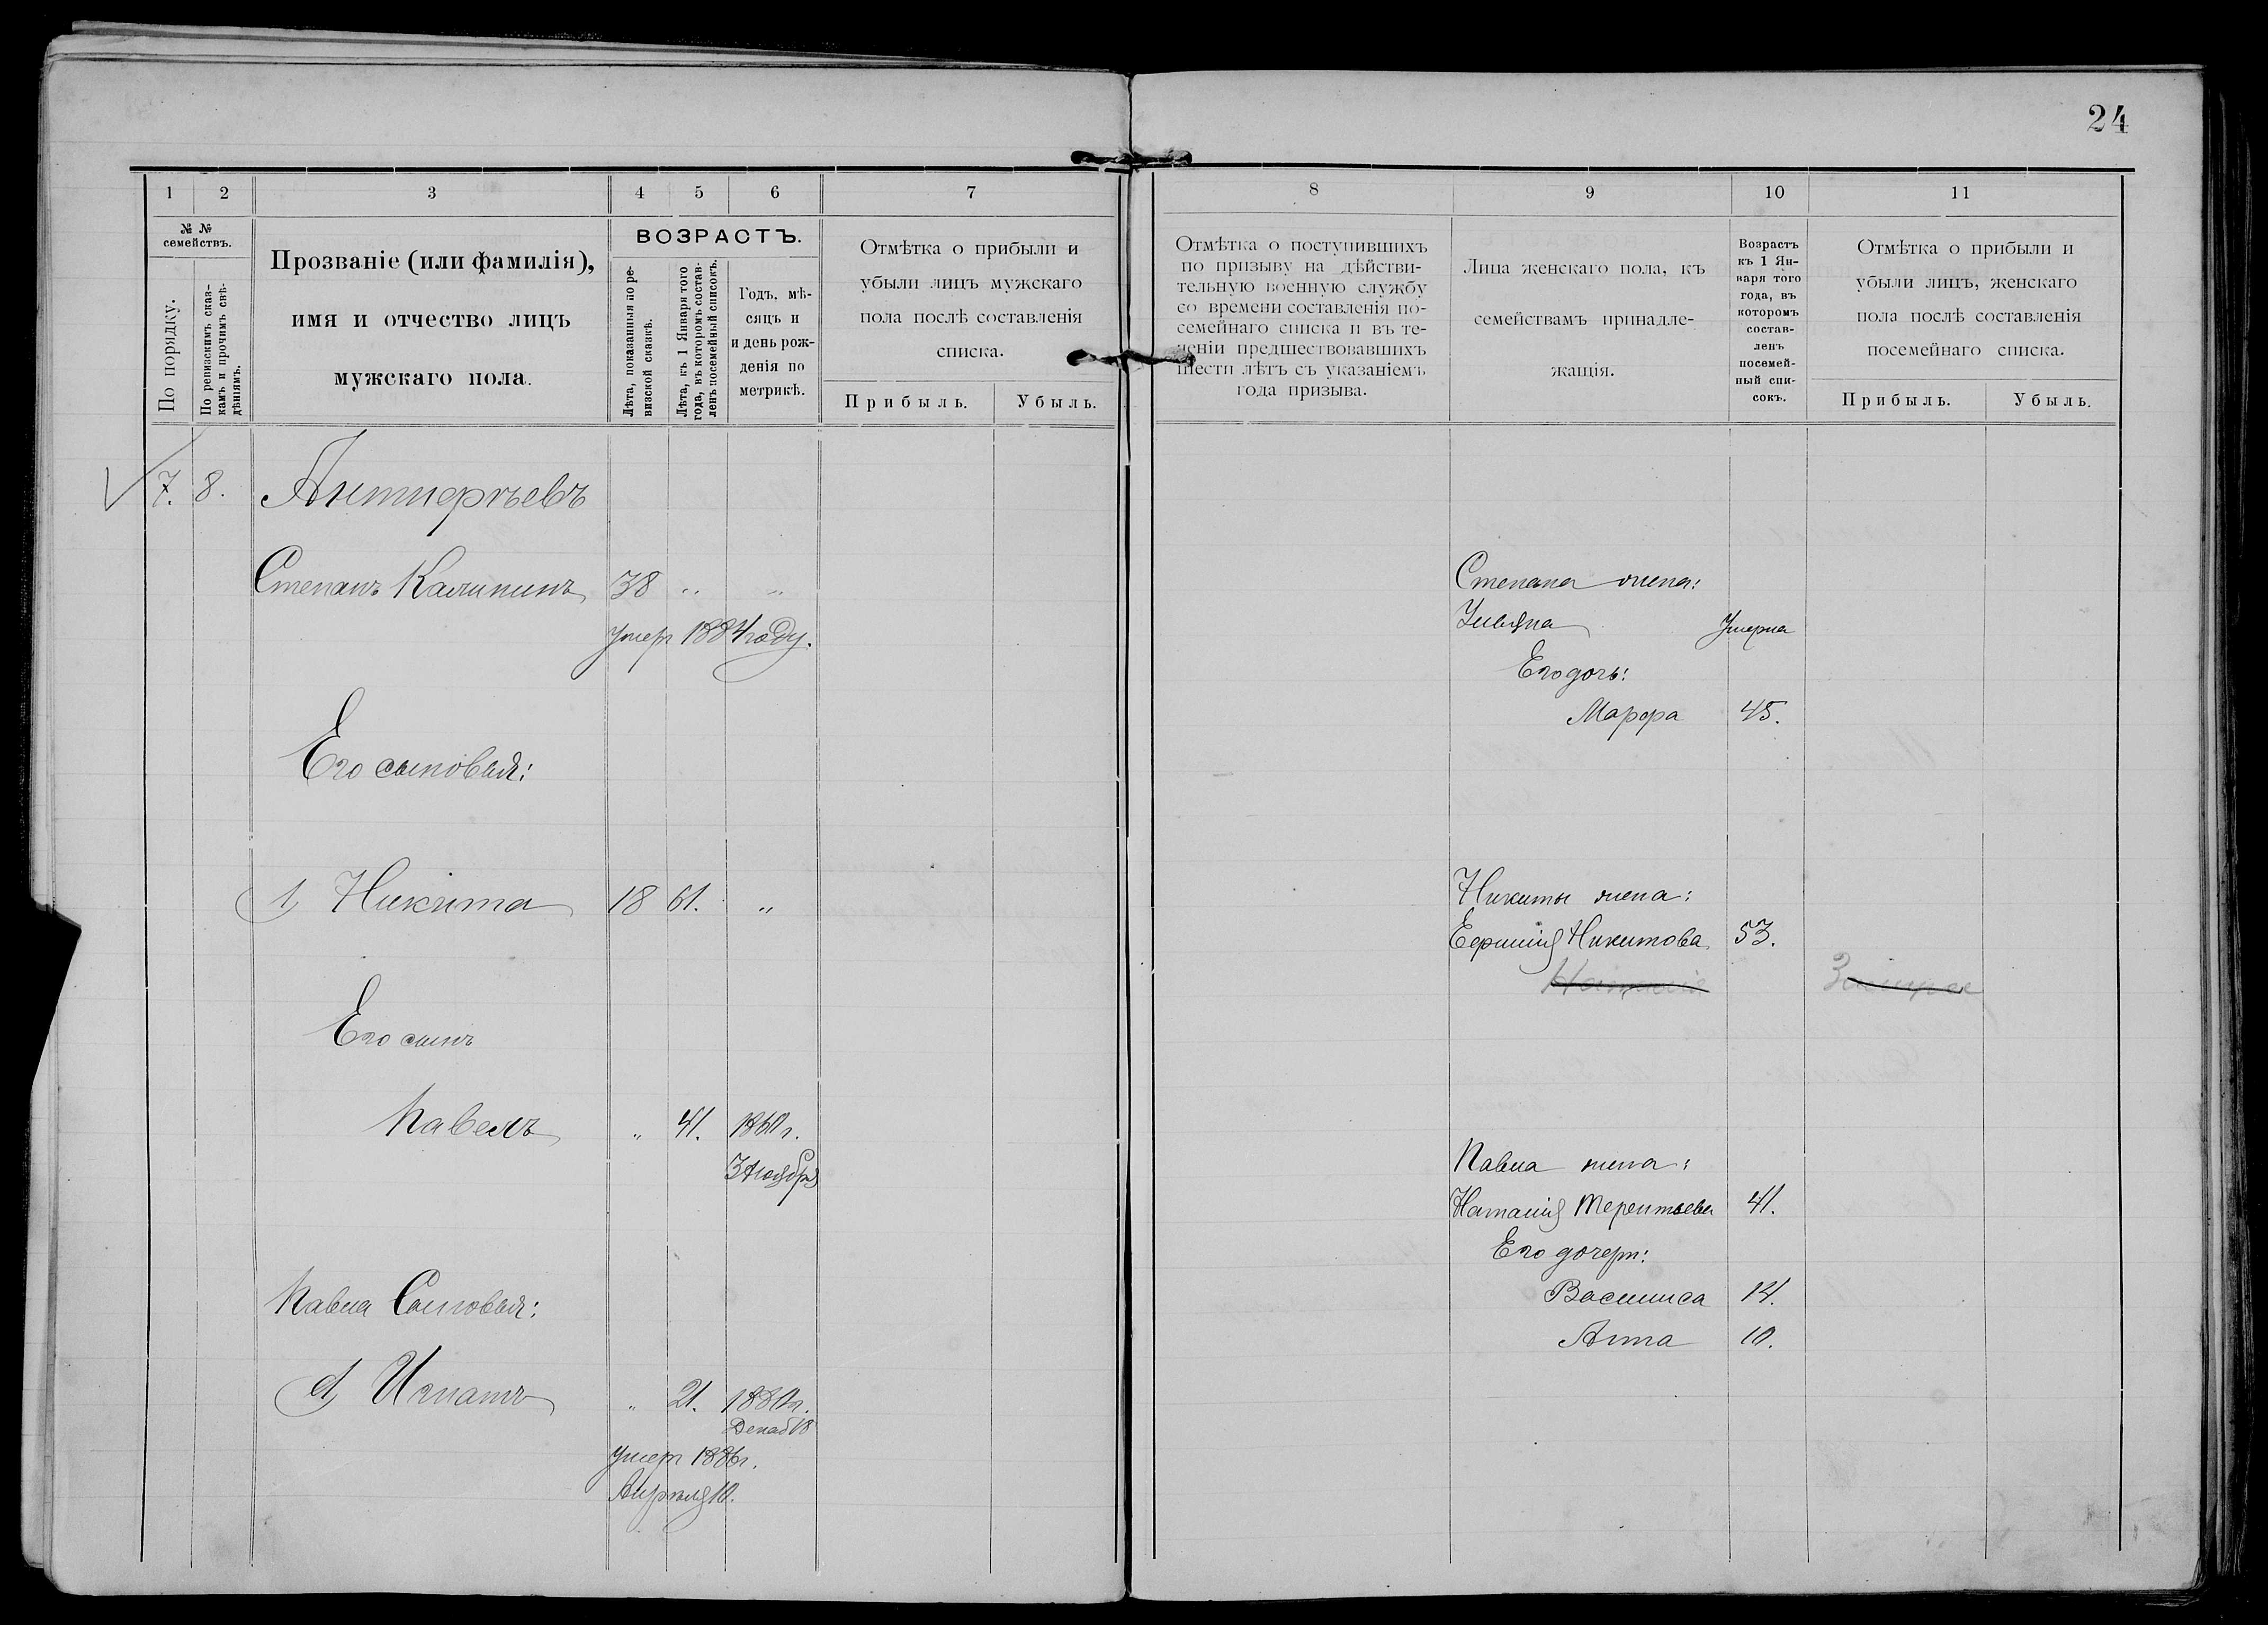 24
1 2 3 4 5 6 7
№ № семействъ.
По порядку.
По ревизскимъ сказкамъ и прочимъ свѣдѣніямъ.
Прозваніе (или фамилія),
имя и отчество лицъ
мужскаго пола.
ВОЗРАСТЪ.
Лѣта, показанныя по ревизской сказкѣ.
Лѣта, къ 1 Января того года, въ которомъ составленъ посемейный списокъ.
Годъ, мѣ-
сяцъ и
и день рож-
денія по
метрикѣ.
Отмѣтка о прибыли и
убыли лицъ мужскаго
пола послѣ составленія
списка.
Прибыль. Убыль.
7. 8. Антифьевъ
Степанъ Калининъ 38 „ „
умеръ 1884 году.
Его сыновья:
1, Никита 18 61. „
Его сынъ
Павелъ „ 41. 1860 г.
3 Ноября
Павла Сыновья:
1, Игнатъ „ 21. 1880 г.
Декаб 18
умеръ 1886 г.
Апрѣля 10.
8 9 10 11
Отмѣтка о поступившихъ
по призыву на дѣйстви-
тельную военную службу
со времени составленія по-
семейнаго списка и въ те-
ченіи предшествовавшихъ
шести лѣтъ съ указаніемъ
года призыва.
Лица женскаго пола, къ
семействамъ принадле-
жащія.
Возрастъ
къ 1 Ян-
варя того
года, въ
которомъ
состав-
ленъ
посемей-
ный спи-
сокъ.
Отмѣтка о прибыли и
убыли лицъ, женскаго
пола послѣ составленія
посемейнаго списка.
Прибыль. Убыль.
Степана жена:
Ульяна Умерла
Его дочь:
Марфа 45.
Никиты жена:
Ефимія Никитова 53.
Наталія
Павла жена:
Наталія Терентьева 41.
Его дочери:
Василиса 14.
Анна 10.